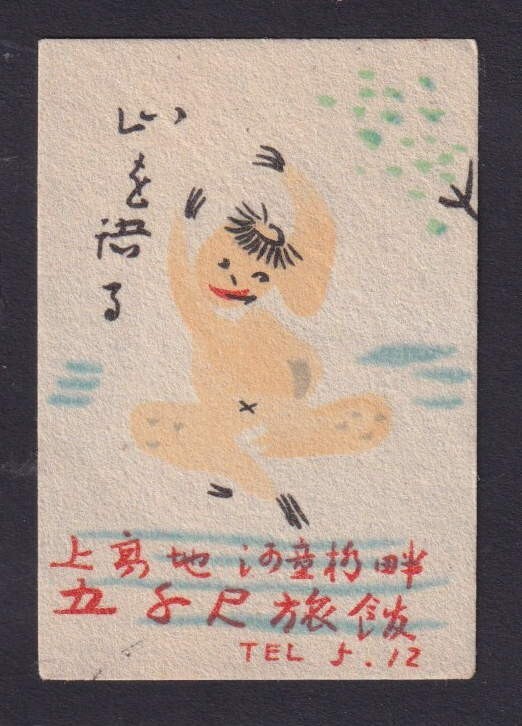 山を語る
上高地 河童桥畔
五千尺旅館
TEL 5.12